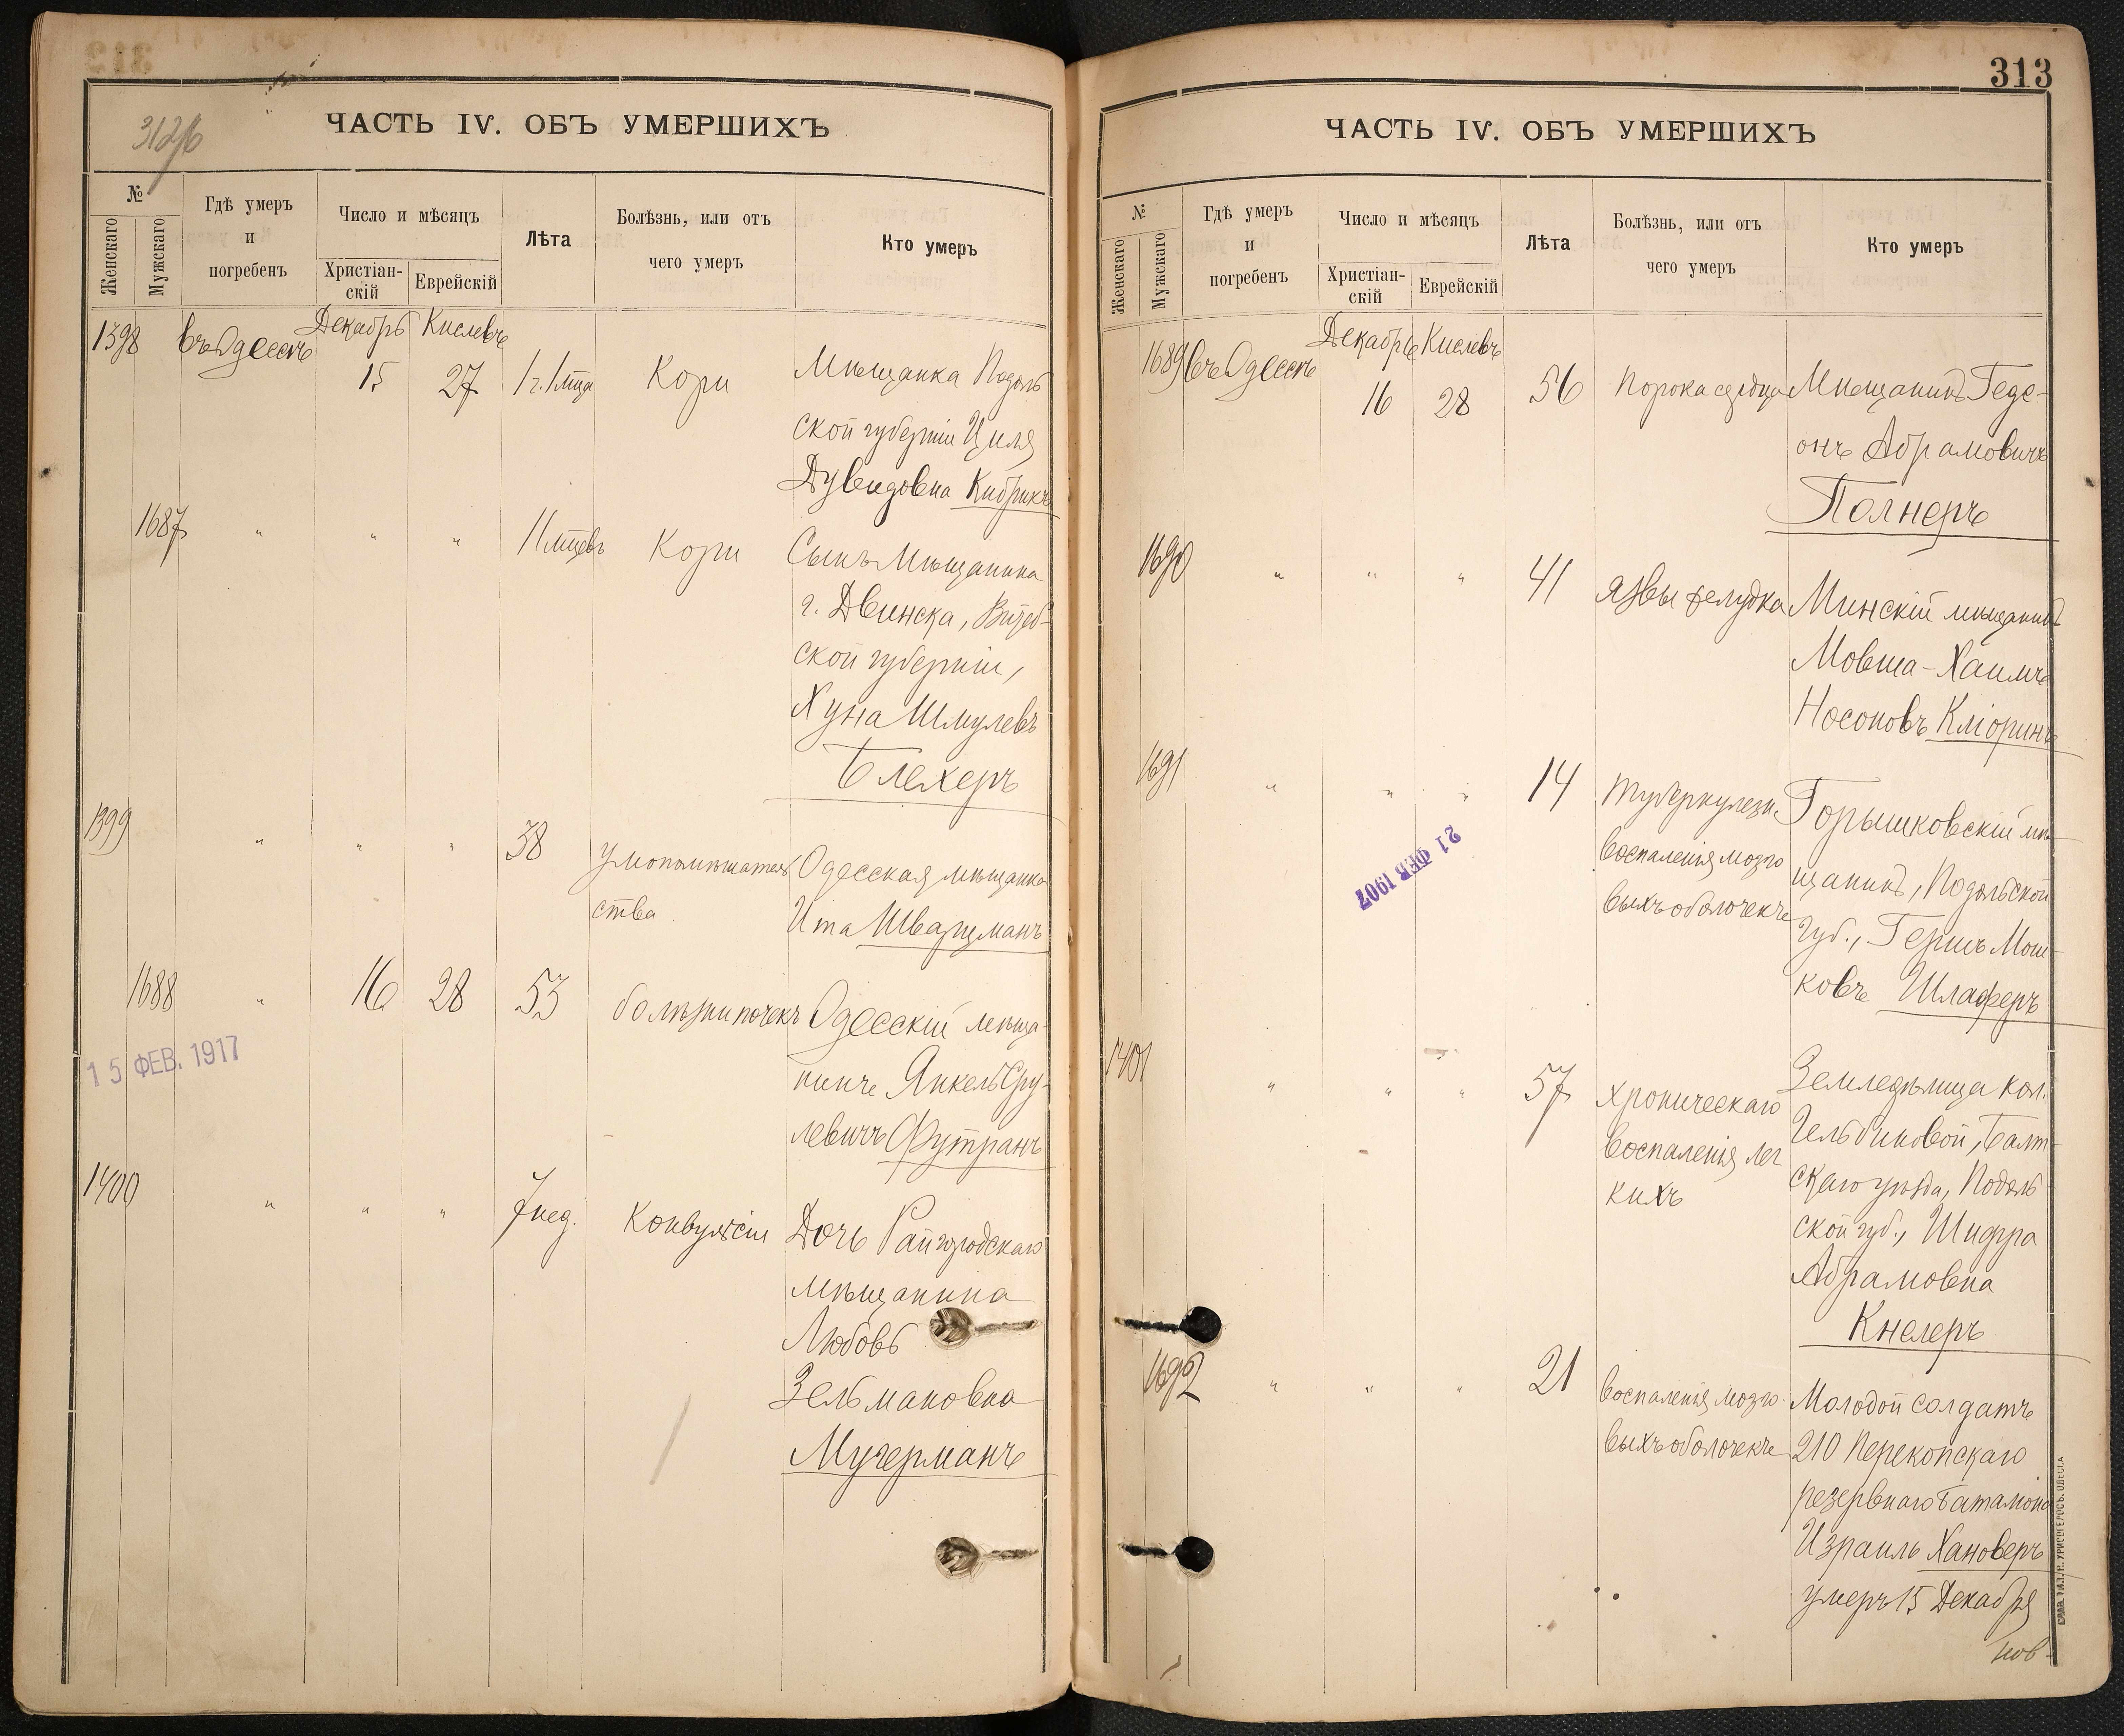 312б
ЧАСТЬ IV. ОБЪ УМЕРШИХЪ
№
Женскаго
Мужскаго
Гдѣ умеръ
и
погребенъ
Число и мѣсяцъ
Христіан-
скій
Еврейскій
Лѣта
Болѣзнь, или отъ
чего умеръ
Кто умеръ
1398 въ Одессѣ Декабрь Кислевъ
15 27 1 г. 1 мца Кори Мѣщанка Подоль
ской губерніи Циля
Дувидовна Кибрикъ
1687 " " " 11 мцевъ Кори Сынъ Мѣщанина
г. Двинска, Витеб-
ской губерніи,
Хуна Шмулевъ
Блехеръ
1399 " " " 38 умопомѣшатель Одесская мѣщанка
ства Ита Шварцманъ
1688 " 16 28 53 болѣзни почекъ Одесскій мѣща-
нинъ Янкель Сру-
левичъ Футранъ
15 ФЕВ. 1917
1400 " " " 7 нед. Конвульсіи Дочь Райгородскаго
мѣщанина
Любовь
Зельмановна
Мучерманъ
313
ЧАСТЬ IV. ОБЪ УМЕРШИХЪ
№
Женскаго
Мужскаго
Гдѣ умеръ
и
погребенъ
Число и мѣсяцъ
Христіан-
скій
Еврейскій
Лѣта
Болѣзнь, или отъ
чего умеръ
Кто умеръ
1689 въ Одессѣ Декабрь Кислевъ
16 28 56 Порока сердца Мѣщанинъ Геде-
онъ Абрамовичъ
Полнеръ
1690 " " " 41 Язвы желудка Минскій мѣщанинъ
Мовша-Хаимъ
Носоновъ Кліоринъ
1691 " " " 14 Туберкулезн. Горышковскій мѣ-
воспаленія мозго щанинъ, Подольской
выхъ оболочекъ губ., Гершъ Мош-
ковъ Шлаферъ
21 ФЕВ 1907
1401 " " " 57 Хроническаго Земледѣлица кол.
воспаленія лег Гельбиновой, Балт-
кихъ скаго уѣзда, Подоль
ской губ., Шифра
Абрамовна
Кнелеръ
1692 " " " 21 Воспаленія мозго- Молодой солдатъ
выхъ оболочекъ 210 Перекопскаго
резервнаго баталіона
Израиль Хановеръ
умеръ 15 Декабря
нов-